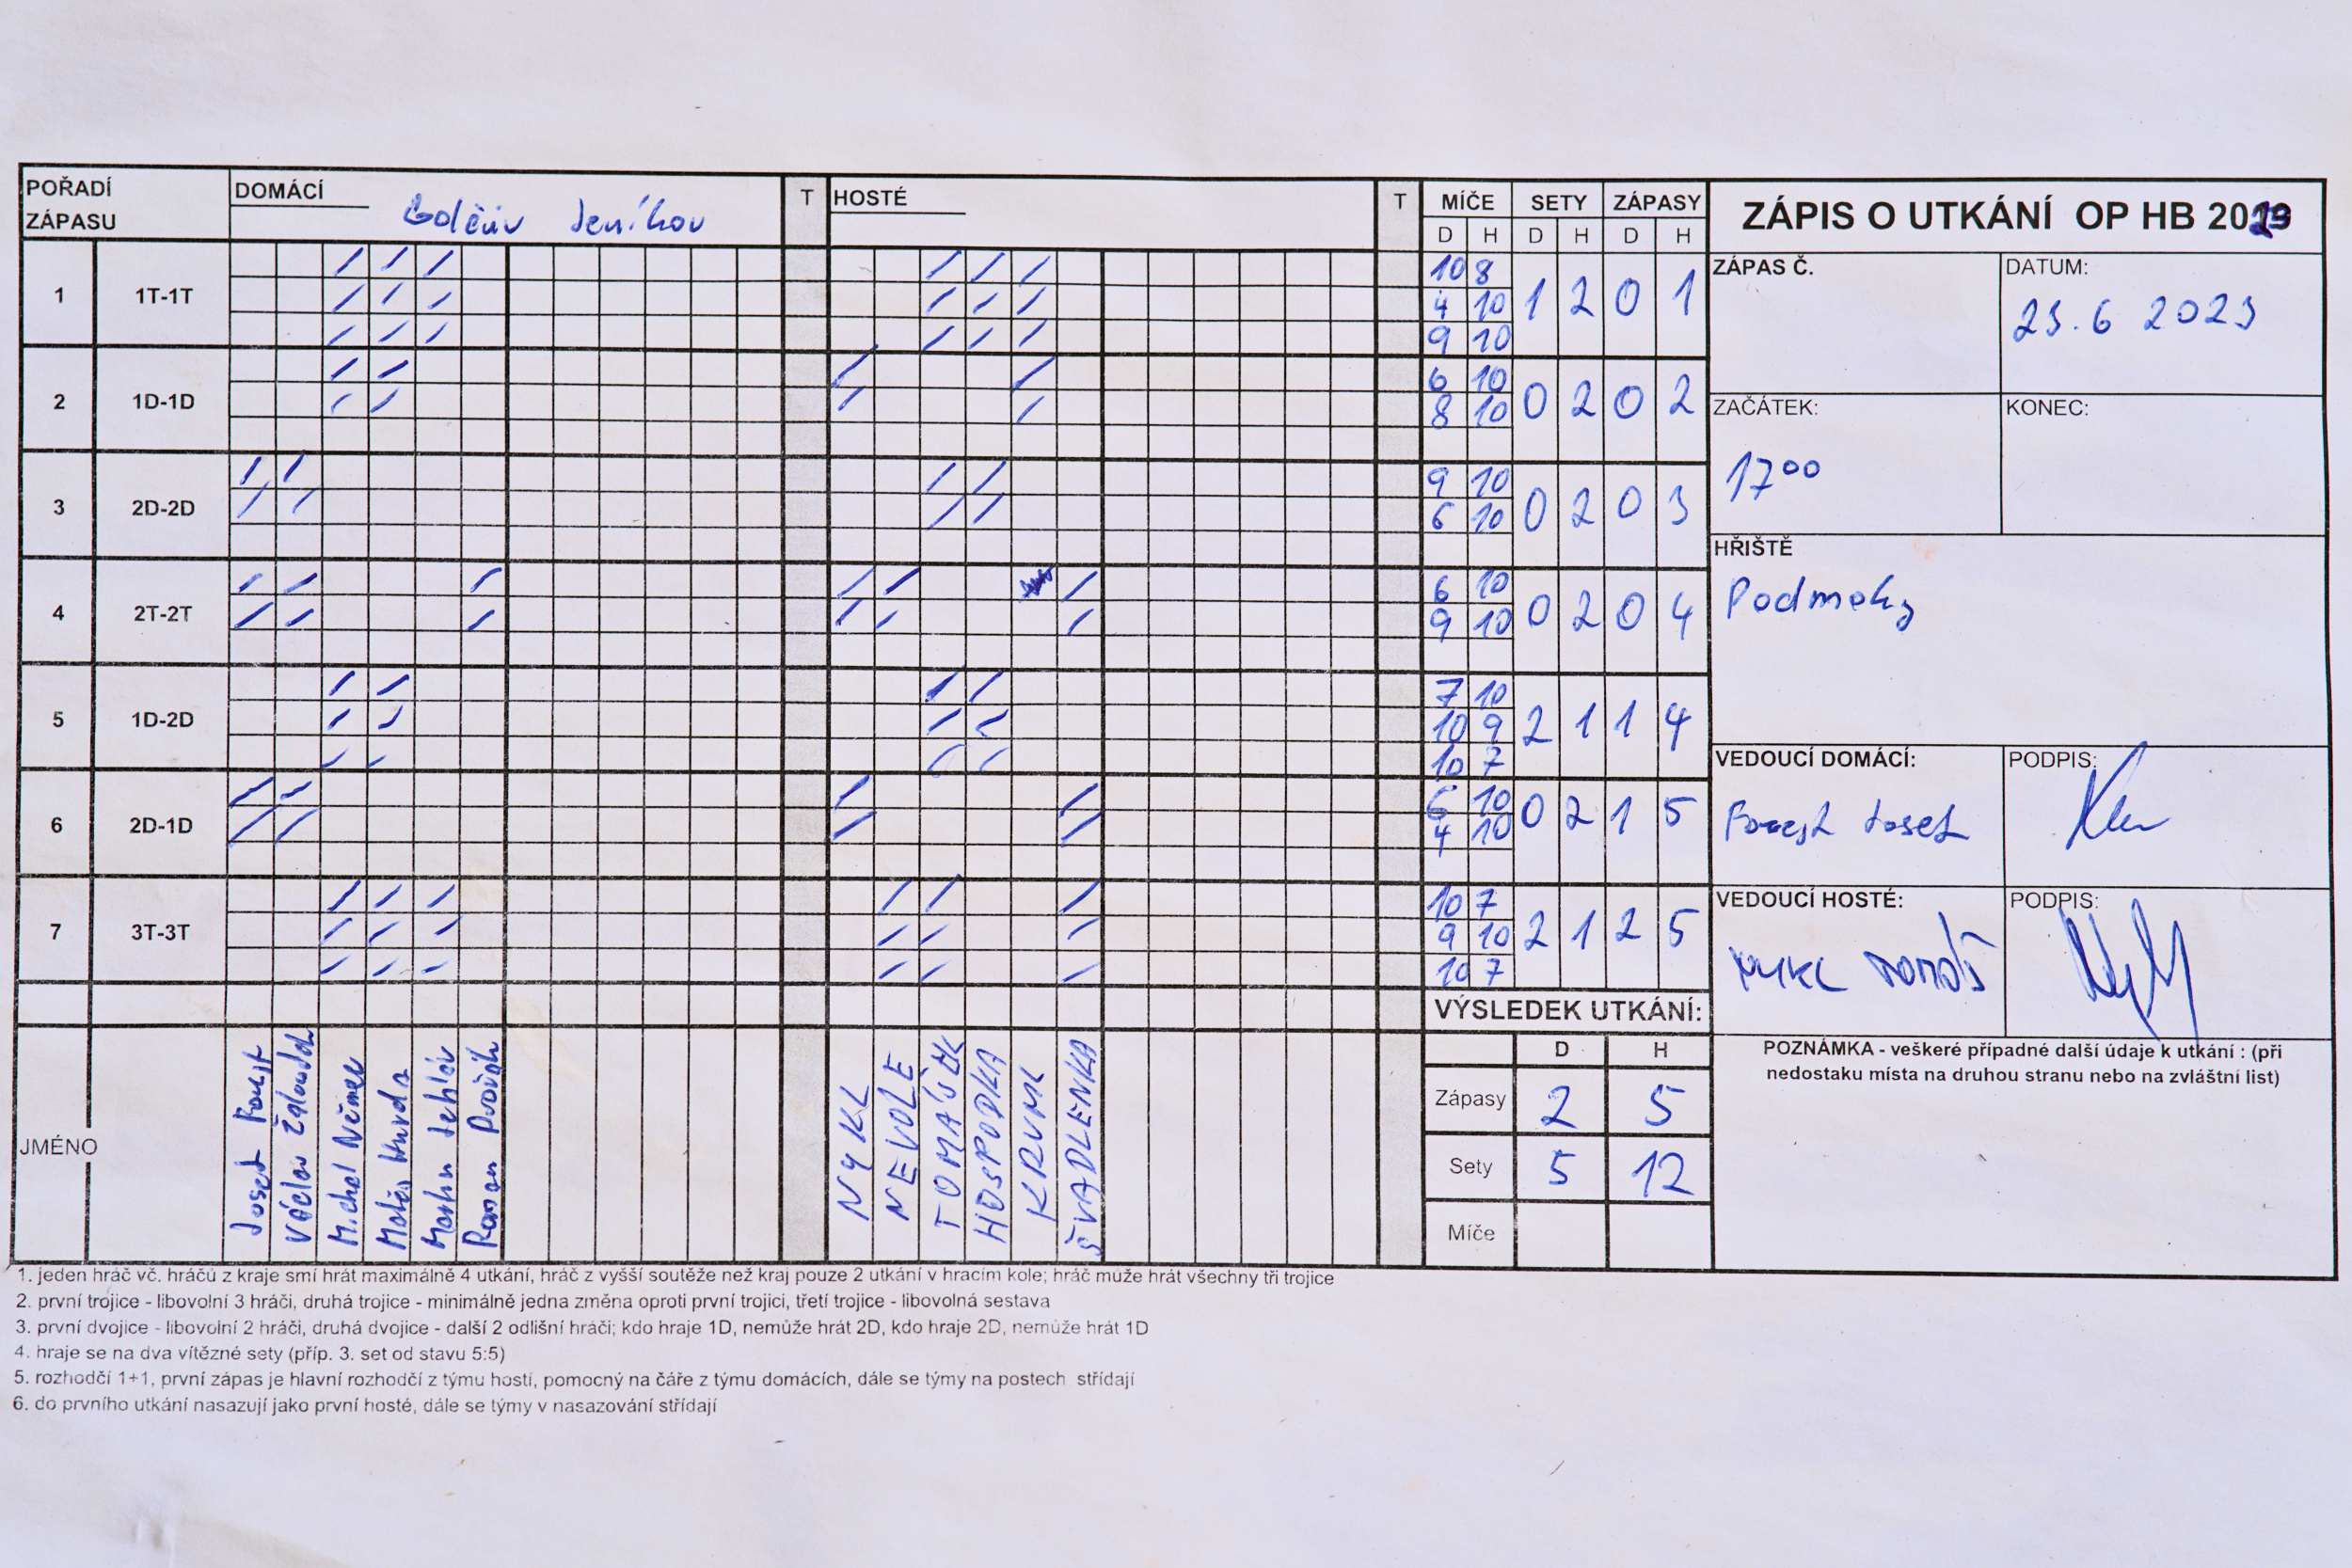 POŘADÍ ZÁPASU DOMÁCÍ Golčův Jeníkov T HOSTÉ T MÍČE SETY ZÁPASY
D H D H D H
1 1T-1T 10 8 1 2 0 1
4 10
9 10
2 1D-1D 6 10 0 2 0 2
8 10
3 2D-2D 9 10 0 2 0 3
6 10
4 2T-2T 6 10 0 2 0 4
9 10
5 1D-2D 7 10 2 1 1 4
10 9
10 7
6 2D-1D 6 10 0 2 1 5
4 10
7 3T-3T 10 7 2 1 2 5
9 10
10 7
JMÉNO
Josef
Václav
Michal Němec
Matěj
Martin
Roman
NYKL
NEVOLE
TOMÁŠEK
HOSPODKA
KRUML
ŠVADLENKA
VÝSLEDEK UTKÁNÍ:
D H
Zápasy 2 5
Sety 5 12
Míče
ZÁPIS O UTKÁNÍ OP HB 2023
ZÁPAS Č. DATUM:
23.6 2023
ZAČÁTEK: KONEC:
17 00
HŘIŠTĚ
Podmoky
VEDOUCÍ DOMÁCÍ: PODPIS:
Josef
VEDOUCÍ HOSTÉ: PODPIS:
NYKL TOMÁŠ
POZNÁMKA - veškeré případné další údaje k utkání : (při
nedostaku místa na druhou stranu nebo na zvláštní list)
1. jeden hráč vč. hráčů z kraje smí hrát maximálně 4 utkání, hráč z vyšší soutěže než kraj pouze 2 utkání v hracím kole; hráč muže hrát všechny tři trojice
2. první trojice - libovolní 3 hráči, druhá trojice - minimálně jedna změna oproti první trojici, třetí trojice - libovolná sestava
3. první dvojice - libovolní 2 hráči, druhá dvojice - další 2 odlišní hráči; kdo hraje 1D, nemůže hrát 2D, kdo hraje 2D, nemůže hrát 1D
4. hraje se na dva vítězné sety (příp. 3. set od stavu 5:5)
5. rozhodčí 1+1, první zápas je hlavní rozhodčí z týmu hostí, pomocný na čáře z týmu domácích, dále se týmy na postech střídají
6. do prvního utkání nasazují jako první hosté, dále se týmy v nasazování střídají